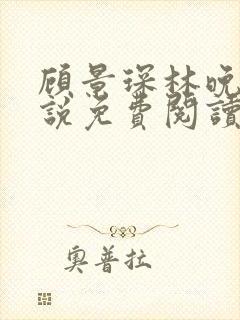 顾景琛林晚
說免費閱讀
奧普拉